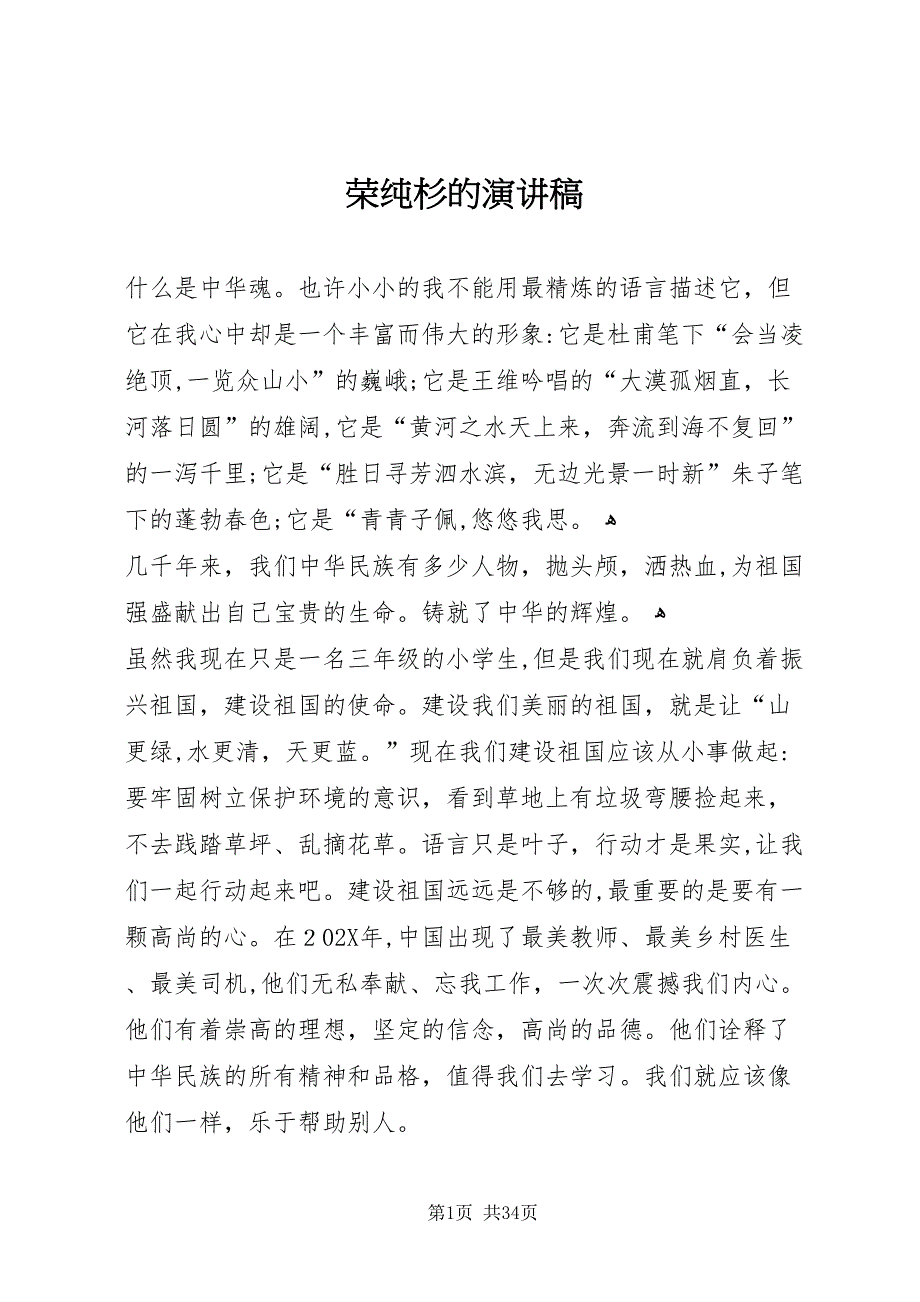 荣纯杉的演讲稿
什么是中华魂。也许小小的我不能用最精炼的语言描述它，但
它在我心中却是一个丰富而伟大的形象:它是杜甫笔下“会当凌
绝顶,一览众山小”的巍峨;它是王维吟唱的“大漠孤烟直，长
河落日圆”的雄阔,它是“黄河之水天上来，奔流到海不复回”
的一泻千里;它是“胜日寻芳泗水滨，无边光景一时新”朱子笔
下的蓬勃春色;它是“青青子佩,悠悠我思。 ﻫ
几千年来，我们中华民族有多少人物，抛头颅，洒热血,为祖国
强盛献出自己宝贵的生命。铸就了中华的辉煌。 ﻫ
虽然我现在只是一名三年级的小学生,但是我们现在就肩负着振
兴祖国，建设祖国的使命。建设我们美丽的祖国，就是让“山
更绿,水更清，天更蓝。”现在我们建设祖国应该从小事做起:
要牢固树立保护环境的意识，看到草地上有垃圾弯腰捡起来，
不去践踏草坪、乱摘花草。语言只是叶子，行动才是果实,让我
们一起行动起来吧。建设祖国远远是不够的,最重要的是要有一
颗高尚的心。在２02X年,中国出现了最美教师、最美乡村医生
、最美司机,他们无私奉献、忘我工作，一次次震撼我们内心。
他们有着崇高的理想，坚定的信念，高尚的品德。他们诠释了
中华民族的所有精神和品格，值得我们去学习。我们就应该像
他们一样，乐于帮助别人。
第1页 共34页